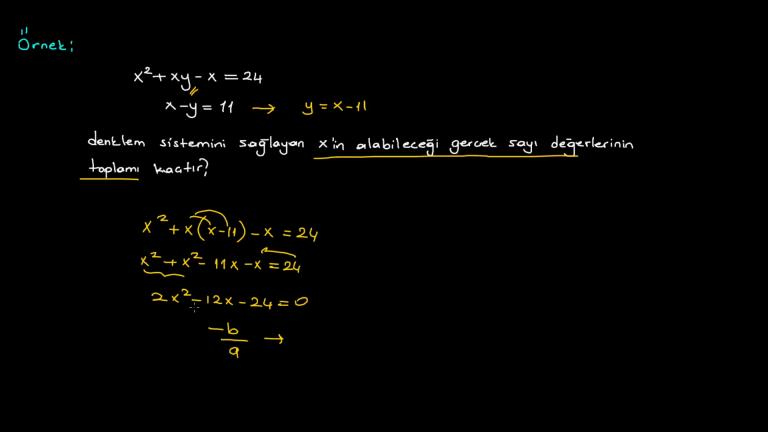 Örnek:
x² + xy - x = 24
x - y = 11 → y = x - 11
denklem sistemini sağlayan x'in alabileceği gerçek sayı değerlerinin
toplamı kaçtır?
x² + x(x - 11) - x = 24
x² + x² - 11x - x = 24
2x² - 12x - 24 = 0
-b/a →